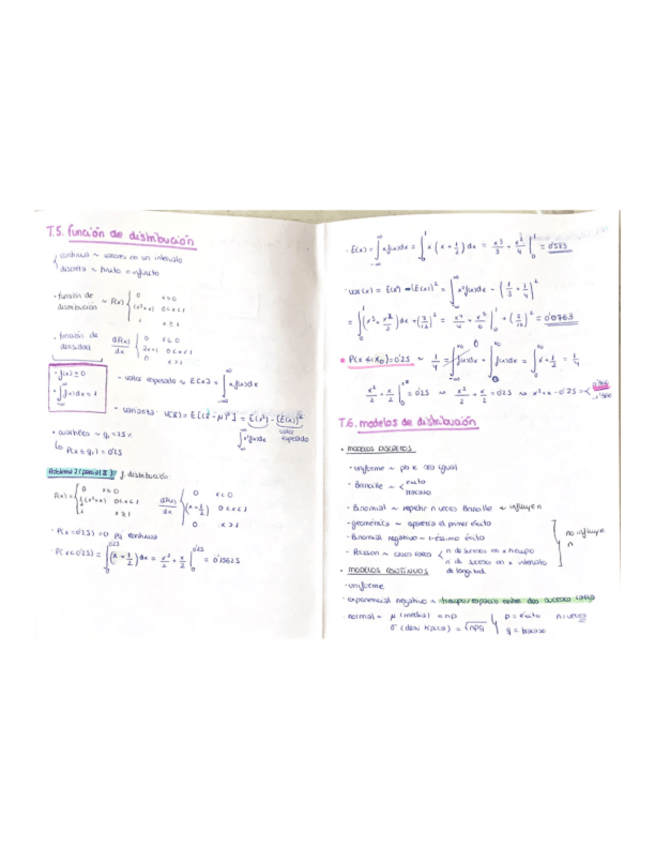 T.5. función de distribución
continua ~ valores en un intervalo
discreta ~ finito o infinito
· función de distribución ~ F(x) { 0 x≤0
(x²+x) 0<x<1
1 x≥1
· función de densidad dF(x)/dx { 0 x≤0
2x+1 0<x<1
0 x>1
· f(x) ≥ 0
· ∫_{-∞}^{∞} f(x)dx = 1
- valor esperado ~ E(x) = ∫_{-∞}^{∞} x f(x)dx
- varianza: V(x) = E[(x-μ)²] = E(x²) - [E(x)]²
∫_{-∞}^{∞} x² f(x)dx valor esperado
· cuartiles ~ q₁ = 25%
↳ P(x ≤ q₁) = 0'25
Problema 2 (parcial II) f distribución:
F(x) = { 0 x≤0
1/2 (x²+x) 0<x<1
1 x≥1
dF(x)/dx { 0 x<0
(x+1/2) 0<x<1
0 x>1
· P(x=0'25) = 0 pq continua
· P(x<0'25) = ∫_0^{0'25} (x+1/2)dx = x²/2 + x/2 |_0^{0'25} = 0'15625
· E(x) = ∫_{-∞}^{∞} x f(x)dx = ∫_0^1 x(x+1/2)dx = x³/3 + x²/4 |_0^1 = 0'583
· var(x) = E(x²) - (E(x))² = ∫_{-∞}^{∞} x² f(x)dx - (1/3+1/4)²
= ∫_0^1 (x³+x²/2)dx + (7/12)² = x⁴/4 + x³/6 |_0^1 + (7/12)² = 0'0763
• P(x≤x₀) = 0'25 ~ 1/4 = ∫_{-∞}^{0} f(x)dx + ∫_0^{x₀} f(x)dx = ∫_0^{x₀} x+1/2 = 1/4
x²/2 + x/2 |_0^{x₀} = 0'25 ~ x²/2 + x/2 = 0'25 ~ x²+x-0'25 = <
T.6. modelos de distribución
• MODELOS DISCRETOS
- uniforme ~ pb es igual
- Bernoille ~ < éxito
fracaso
- Binomial ~ repetir n veces Bernoille ~ influye n
- geométrica ~ aparezca el primer éxito
- Binomial negativo ~ éxito
- Poisson ~ casos raros < nº de sucesos en x tiempo
nº de sucesos en x intervalo de longitud
no influye n
• MODELOS CONTINUOS
- uniforme
- exponencial negativo ~ tiempo/espacio entre dos sucesos raros
- normal ~ μ (media) = np p = éxito n: veces
σ (desv típica) = √npq q = fracaso